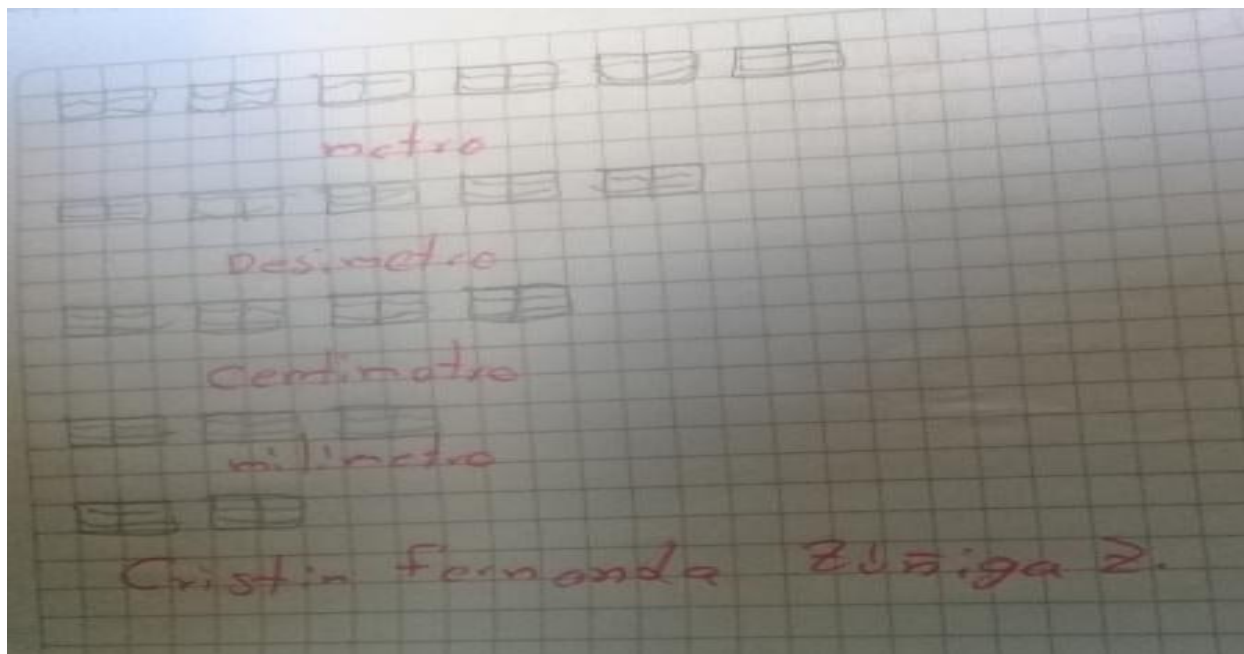 metro
Desimetro
Centimetro
milimetro
Cristin Fernanda Zúñiga Z.